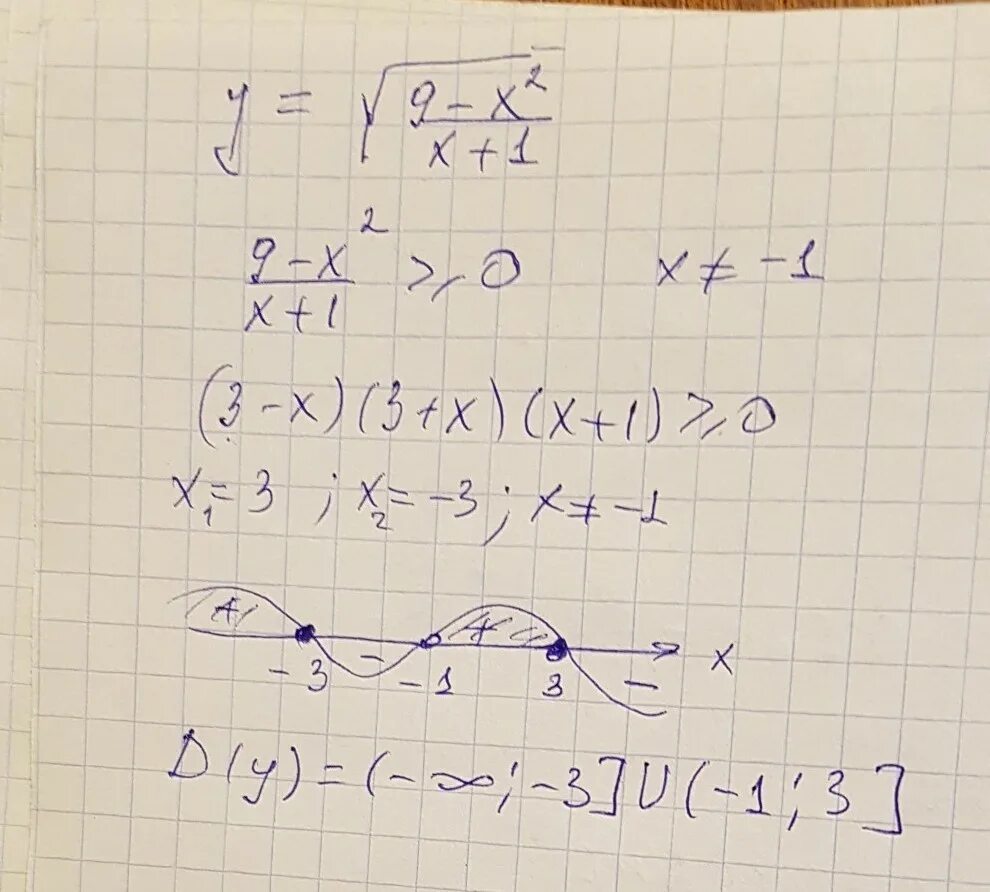 y = √((9-x²)/(x+1))
(9-x²)/(x+1) ⩾ 0    x ≠ -1
(3-x)(3+x)(x+1) ⩾ 0
x₁=3 ; x₂=-3 ; x≠-1
+ - + -
-3 -1 3 x
D(y)=(-∞;-3]U(-1;3]